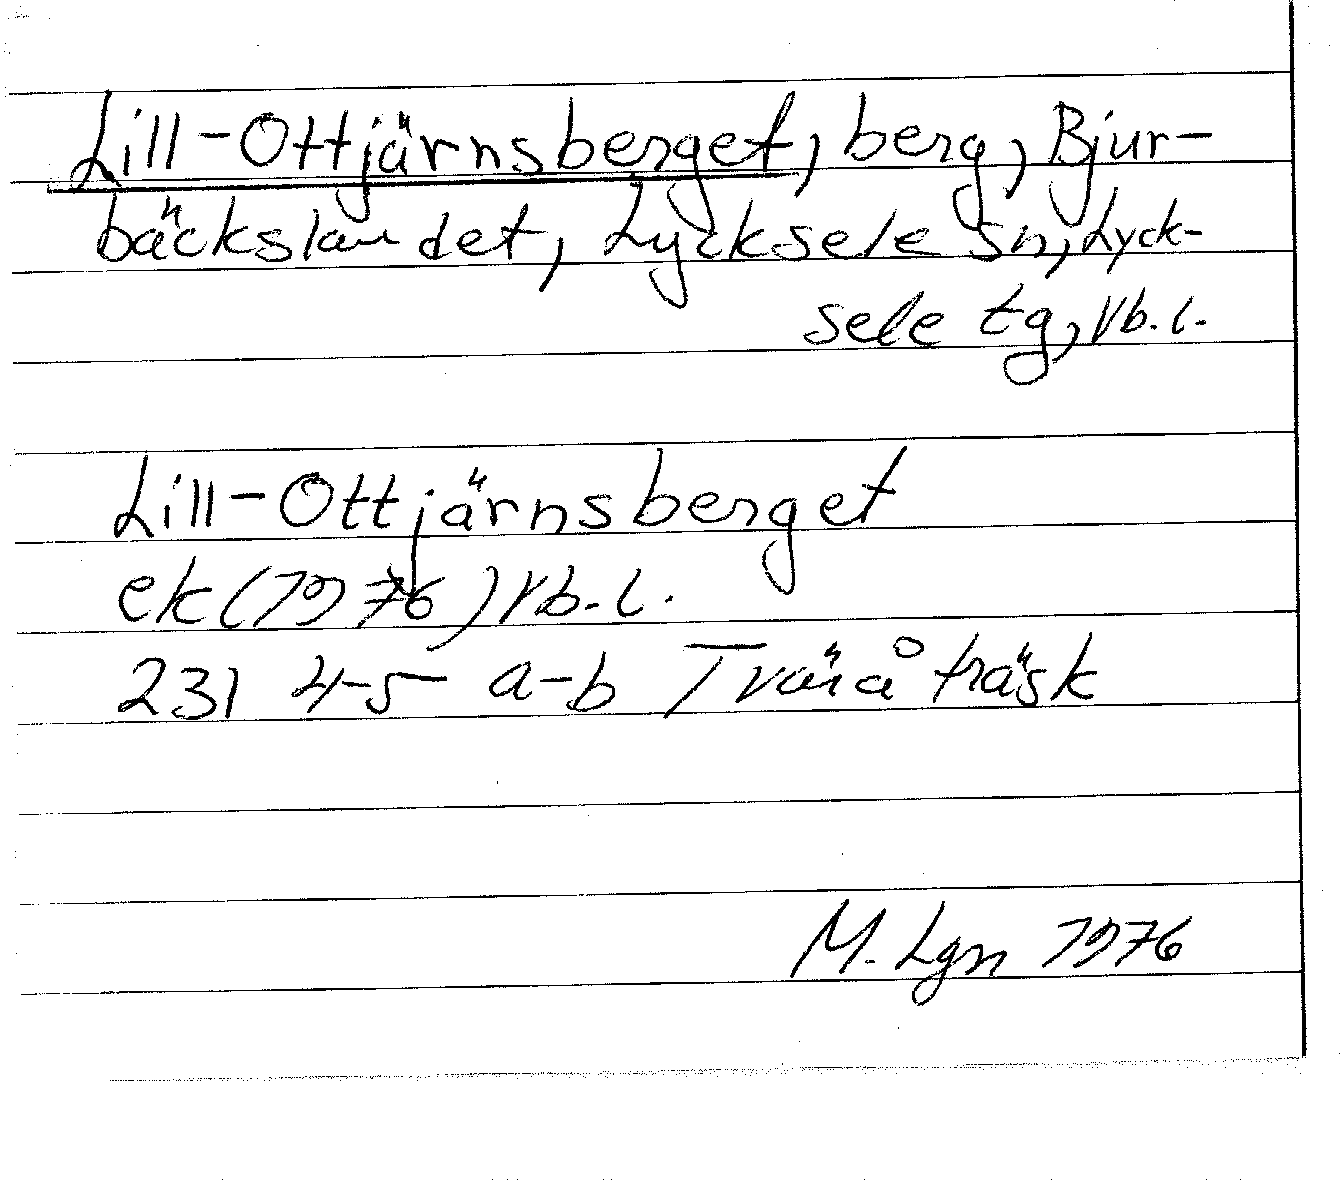 Lill-Ottjärnsberget, berg, Bjur-
bäckslandet, Lycksele sn, Lyck-
sele tg, Vb.l.
Lill-Ottjärnsberget
ek (1976) Vb.l.
231 4-5 a-b Tväråträsk
M. Lgn 1976